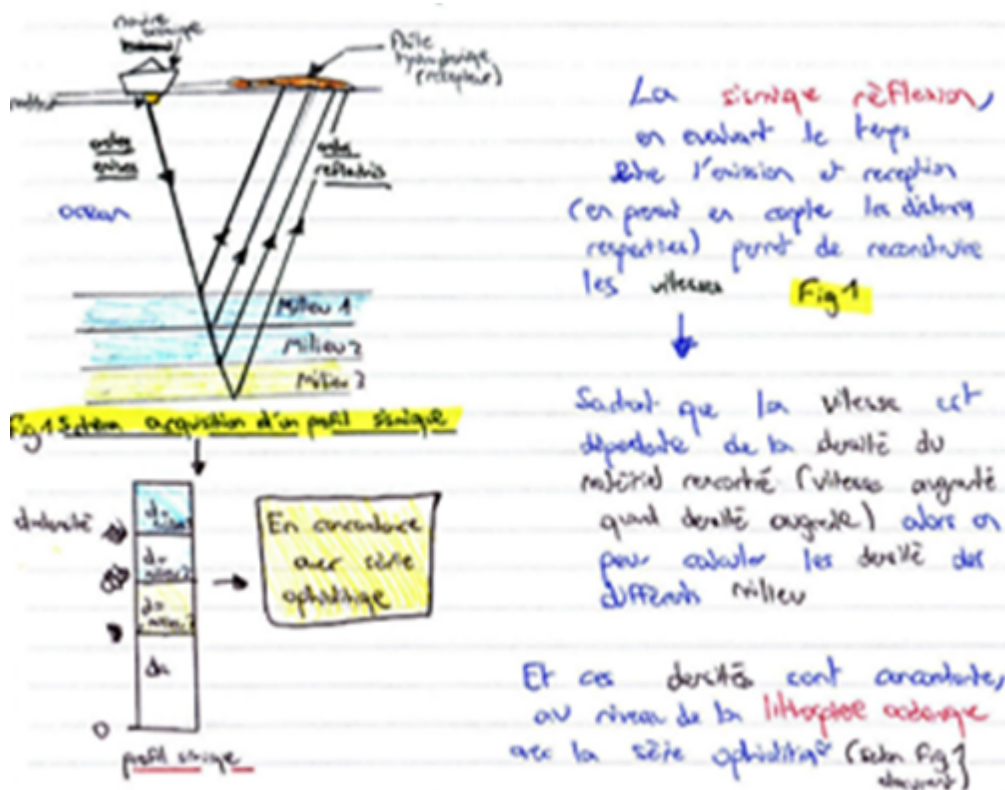 navire
océan
ondes
émises
ondes
réfléchis
Milieu 1
Milieu 2
Milieu 3
Fig 1 Schéma acquisition d'un profil sismique
densité
d1
d2
d3
dn
0
profil sismique
En concordance
avec série
ophiolitique
La sismique réflexion,
en évaluant le temps
entre l'émission et réception
(en prenant en compte les distances
respectives) permet de reconstruire
les vitesses Fig 1
Sachant que la vitesse est
dépendante de la densité du
matériel rencontré (vitesse augmente
quand densité augmente) alors on
peux calculer les densité des
différents milieu
Et ces densités sont concordante,
au niveau de la lithosphère océanique
avec la série ophiolitique (selon Fig 1
document)